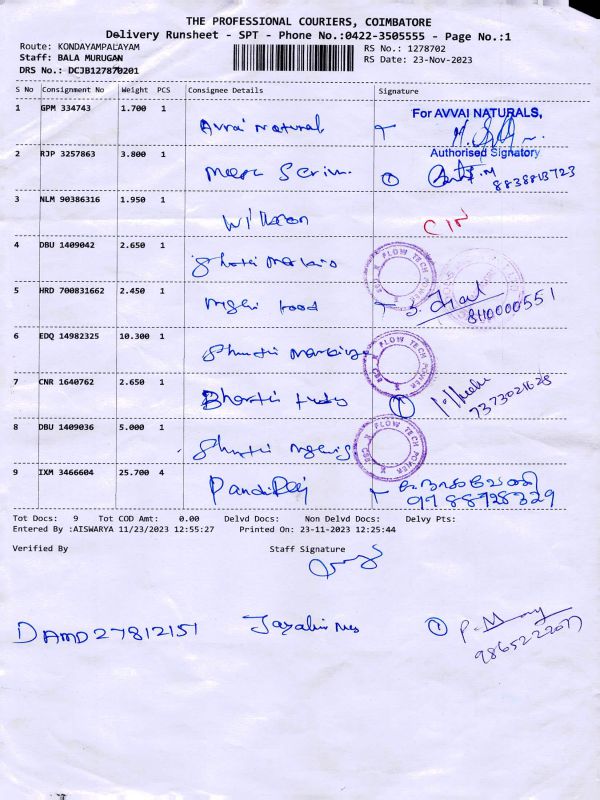 THE PROFESSIONAL COURIERS, COIMBATORE
Delivery Runsheet - SPT - Phone No.:0422-3505555 - Page No.:1
Route: KONDAYAMPALAYAM RS No.: 1278702
Staff: BALA MURUGAN RS Date: 23-Nov-2023
DRS No.: DCJB127870201
S No Consignment No Weight PCS Consignee Details Signature
1 GPM 334743 1.700 1 Avvai Natural For AVVAI NATURALS,
Authorised Signatory
2 RJP 3257863 3.800 1 8838813723
3 NLM 90386316 1.950 1
4 DBU 1409042 2.650 1 FLOW TECH POWER
5 HRD 700831662 2.450 1 food 8110000551
6 EDQ 14982325 10.300 1 FLOW TECH POWER
7 CNR 1640762 2.650 1 7373021628
8 DBU 1409036 5.000 1 FLOW TECH POWER
9 IXM 3466604 25.700 4 Pandi Raj 9788728329
Tot Docs: 9 Tot COD Amt: 0.00 Delvd Docs: Non Delvd Docs: Delvy Pts:
Entered By :AISWARYA 11/23/2023 12:55:27 Printed On: 23-11-2023 12:25:44
Verified By Staff Signature
DAMD27812151 9865222077